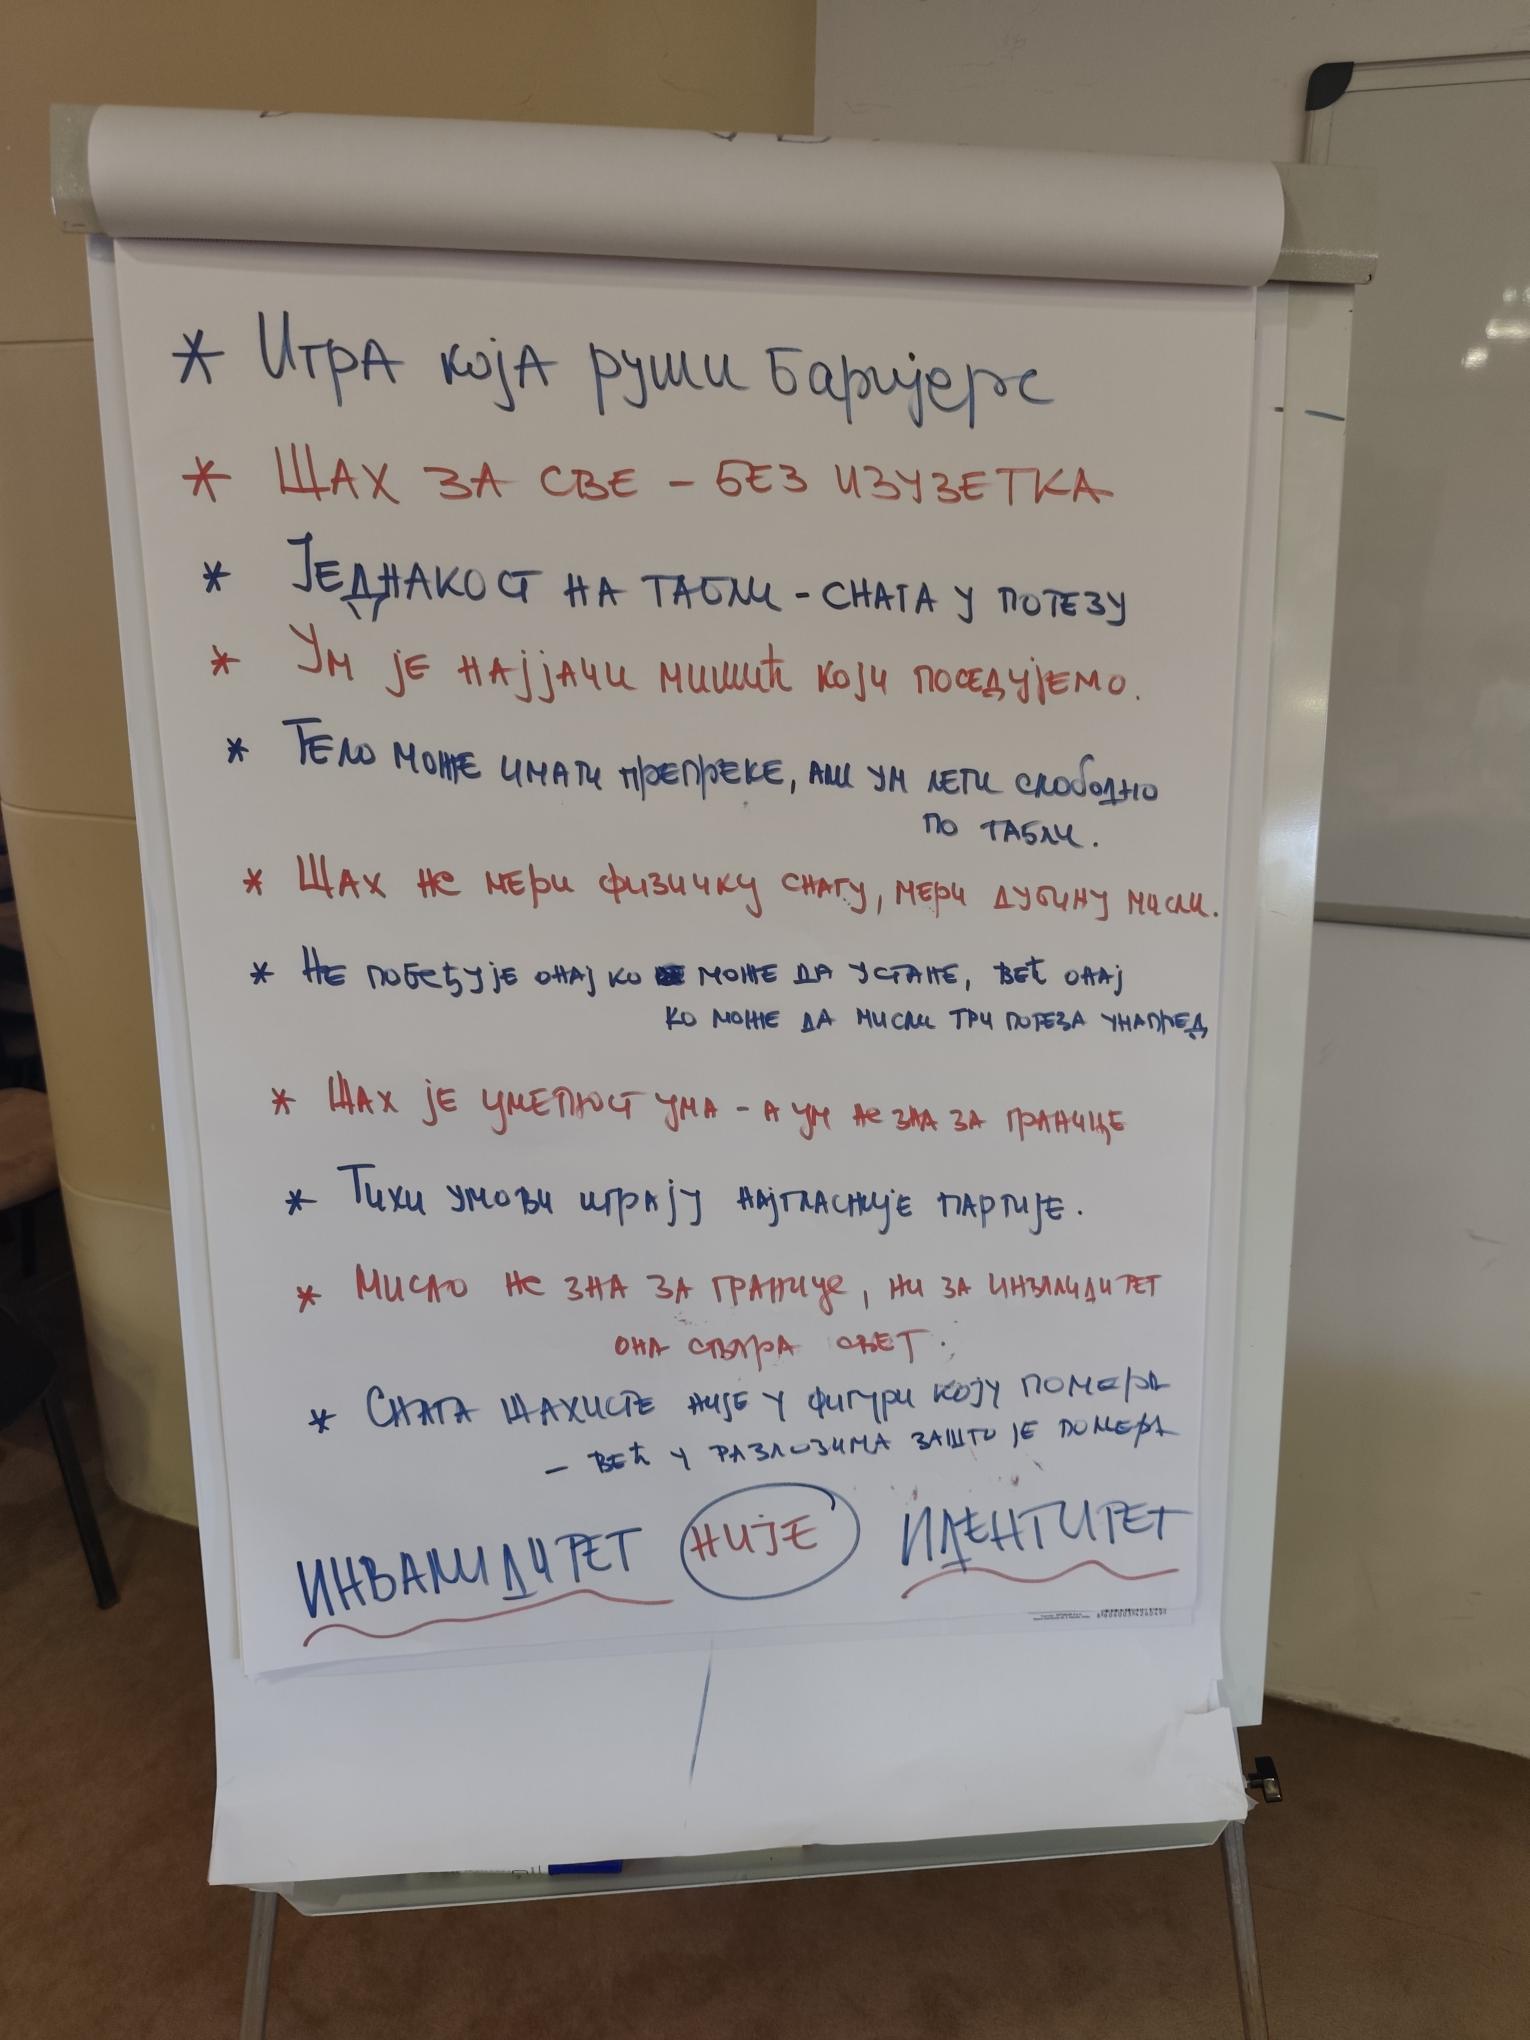 * Игра која руши баријере
* ШАХ ЗА СВЕ - БЕЗ ИЗУЗЕТКА
* ЈЕДНАКОСТ НА ТАБЛИ - СНАГА У ПОТЕЗУ
* УМ ЈЕ НАЈЈАЧИ МИШИЋ КОЈИ ПОСЕДУЈЕМО.
* ТЕЛО МОЖЕ ИМАТИ ПРЕПРЕКЕ, АЛИ УМ ЛЕТИ СЛОБОДНО
ПО ТАБЛИ.
* ШАХ НЕ МЕРИ ФИЗИЧКУ СНАГУ, МЕРИ ДУБИНУ МИСЛИ.
* НЕ ПОБЕЂУЈЕ ОНАЈ КО МОЖЕ ДА УСТАНЕ, ВЕЋ ОНАЈ
КО МОЖЕ ДА МИСЛИ ТРИ ПОТЕЗА УНАПРЕД
* ШАХ ЈЕ УМЕТНОСТ УМА - А УМ НЕ ЗНА ЗА ГРАНИЦЕ
* ТИХИ УМОВИ ИГРАЈУ НАЈГЛАСНИЈЕ ПАРТИЈЕ.
* МИСАО НЕ ЗНА ЗА ГРАНИЦЕ, НИ ЗА ИНВАЛИДИТЕТ
ОНА СТВАРА СВЕТ.
* СНАГА ШАХИСТЕ НИЈЕ У ФИГУРИ КОЈУ ПОМЕРА
- ВЕЋ У РАЗЛОЗИМА ЗАШТО ЈЕ ПОМЕРА
ИНВАЛИДИТЕТ НИЈЕ ИДЕНТИТЕТ